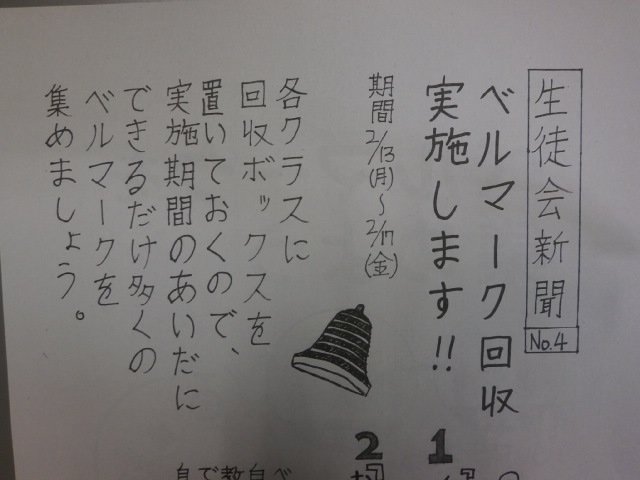 生徒会新聞
No.4
ベルマーク回収
実施します!!
期間2/13(月)～2/17(金)
各クラスに
回収ボックスを
置いておくので、
実施期間のあいだに
できるだけ多くの
ベルマークを
集めましょう。
1
2